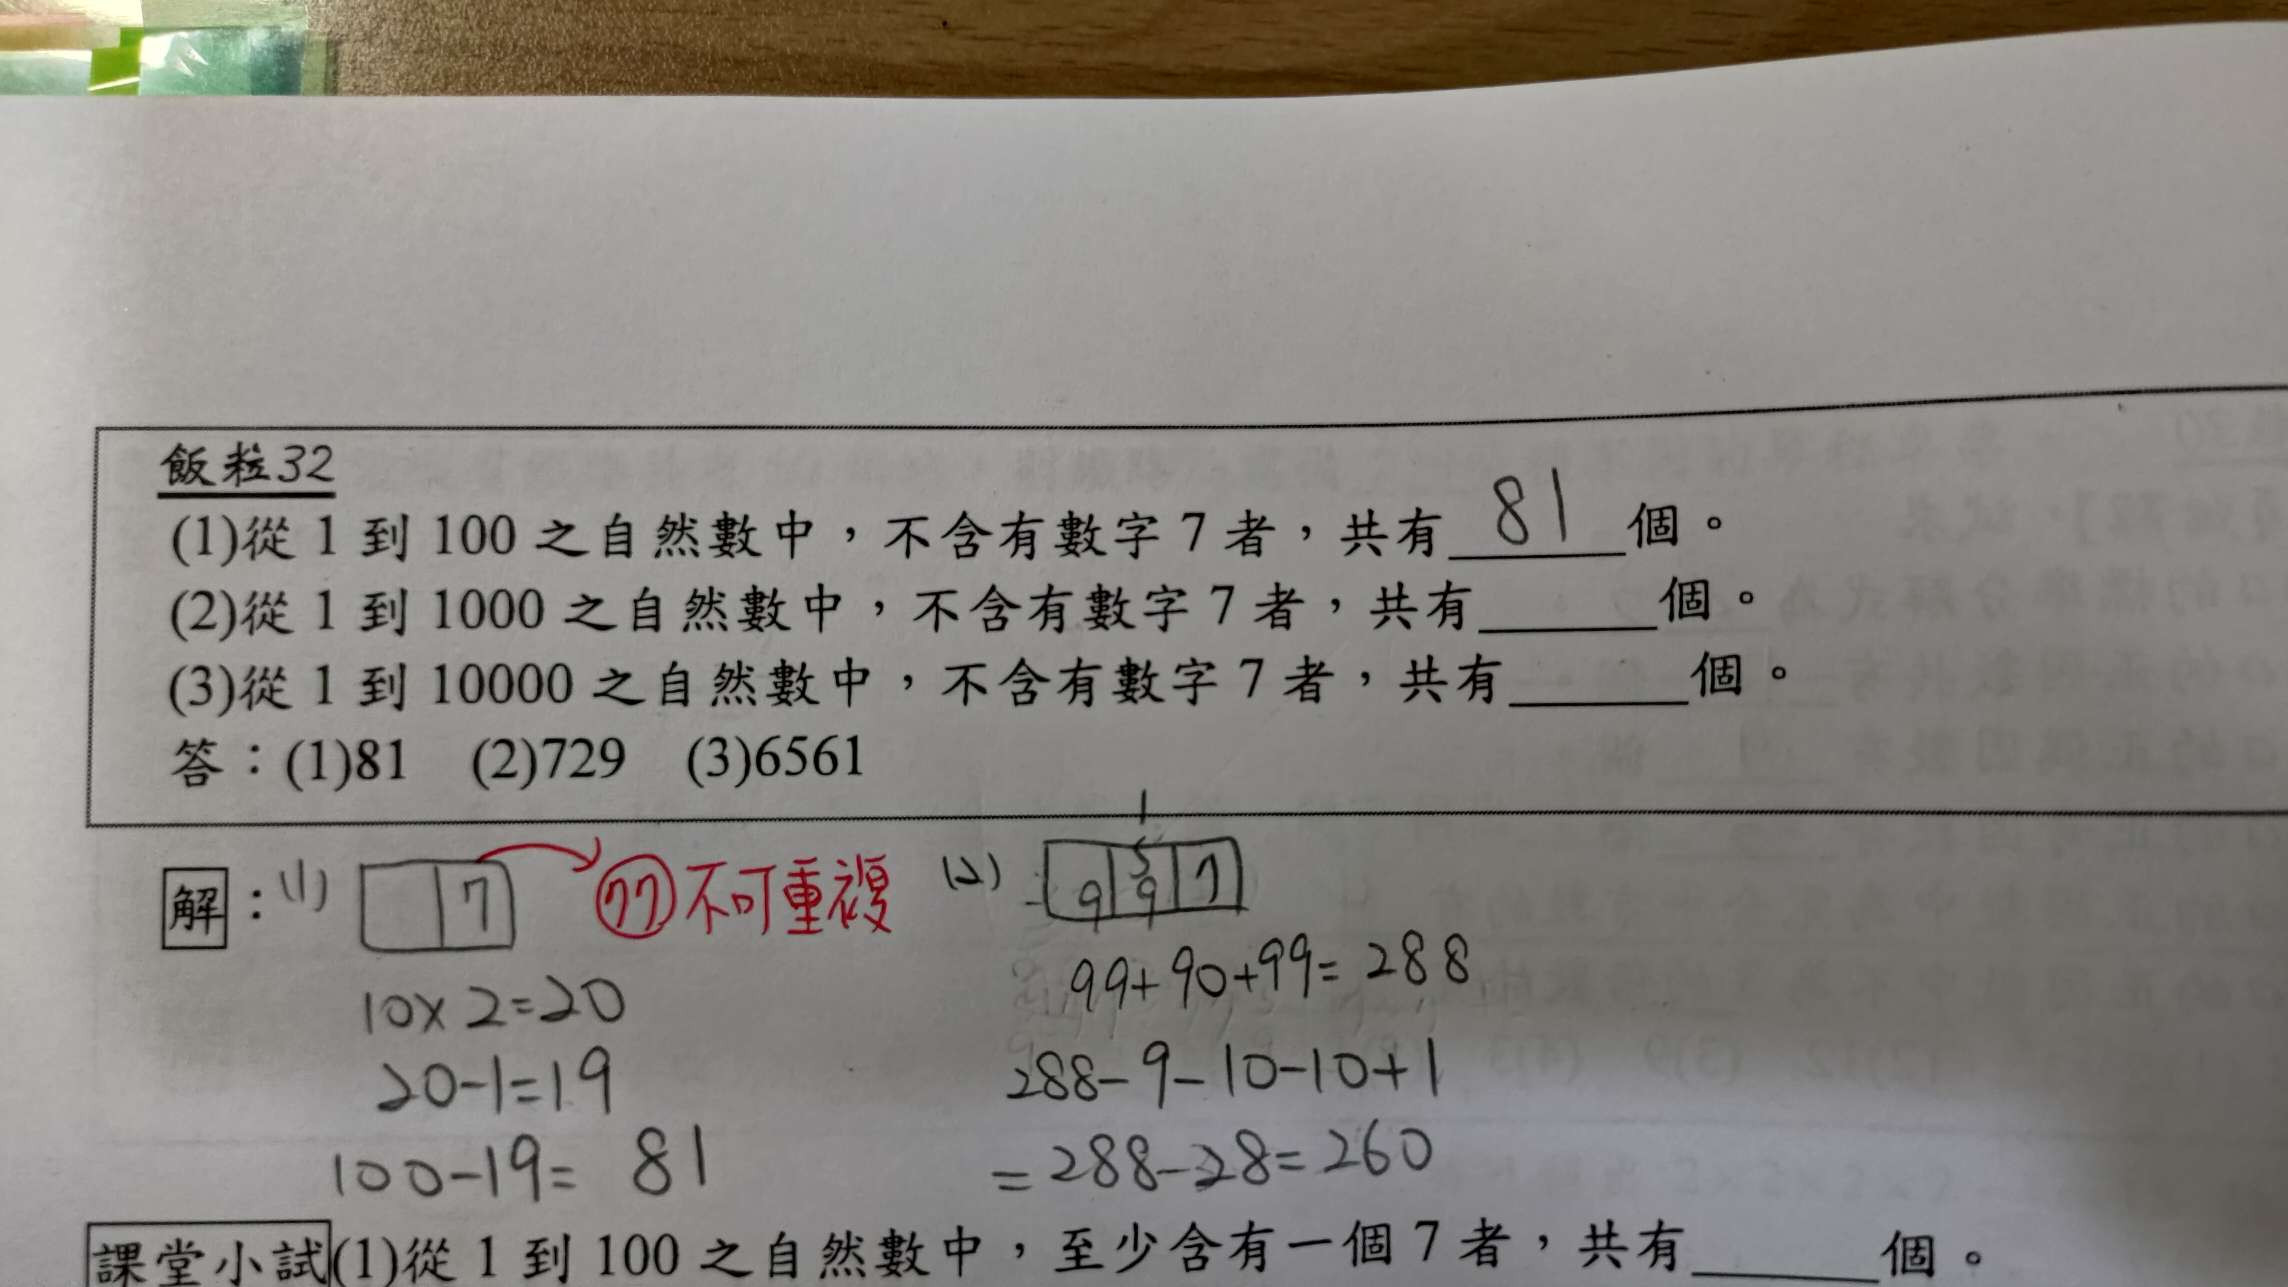 飯粒32
(1)從 1 到 100 之自然數中，不含有數字 7 者，共有 81 個。
(2)從 1 到 1000 之自然數中，不含有數字 7 者，共有______個。
(3)從 1 到 10000 之自然數中，不含有數字 7 者，共有______個。
答：(1)81 (2)729 (3)6561
解：(1) 7 77 不可重複
10×2=20
20-1=19
100-19= 81
(2) 9 9 7
99+90+99=288
288-9-10-10+1
=288-28=260
課堂小試(1)從 1 到 100 之自然數中，至少含有一個 7 者，共有______個。